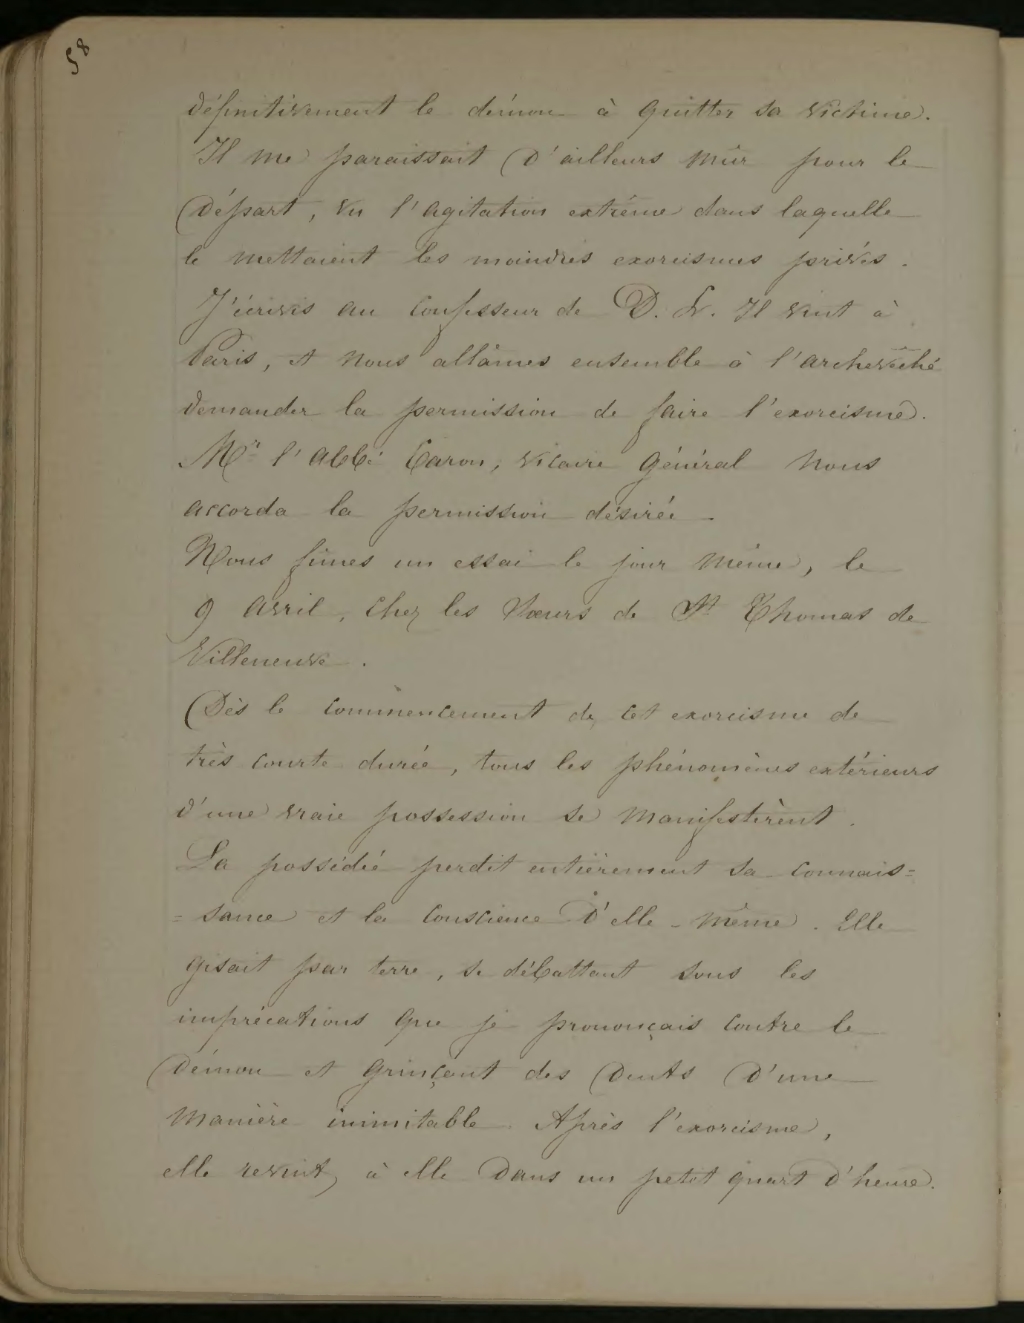 58
définitivement le démon à quitter sa victime.
Il me paraissait d'ailleurs mûr pour le
départ, vu l'agitation extrême dans laquelle
le mettaient les moindres exorcismes privés.
J'écrivis au confesseur de D. V. Il vint à
Paris, et nous allâmes ensemble à l'archevêché
demander la permission de faire l'exorcisme.
Mr l'abbé Caron, vicaire Général nous
accorda la permission désirée
Nous fîmes un essai le jour même, le
9 Avril, chez les Sœurs de St Thomas de
Villeneuve.
Dès le commencement de cet exorcisme de
très courte durée, tous les phénomènes extérieurs
d'une vraie possession se manifestèrent.
La possédée perdit entièrement sa connais=
=sance et la conscience d'elle-même. Elle
gisait par terre, se débattant sous les
imprécations que je prononçais contre le
démon et grinçant des dents d'une
manière inimitable. Après l'exorcisme,
elle revint à elle dans un petit quart d'heure.